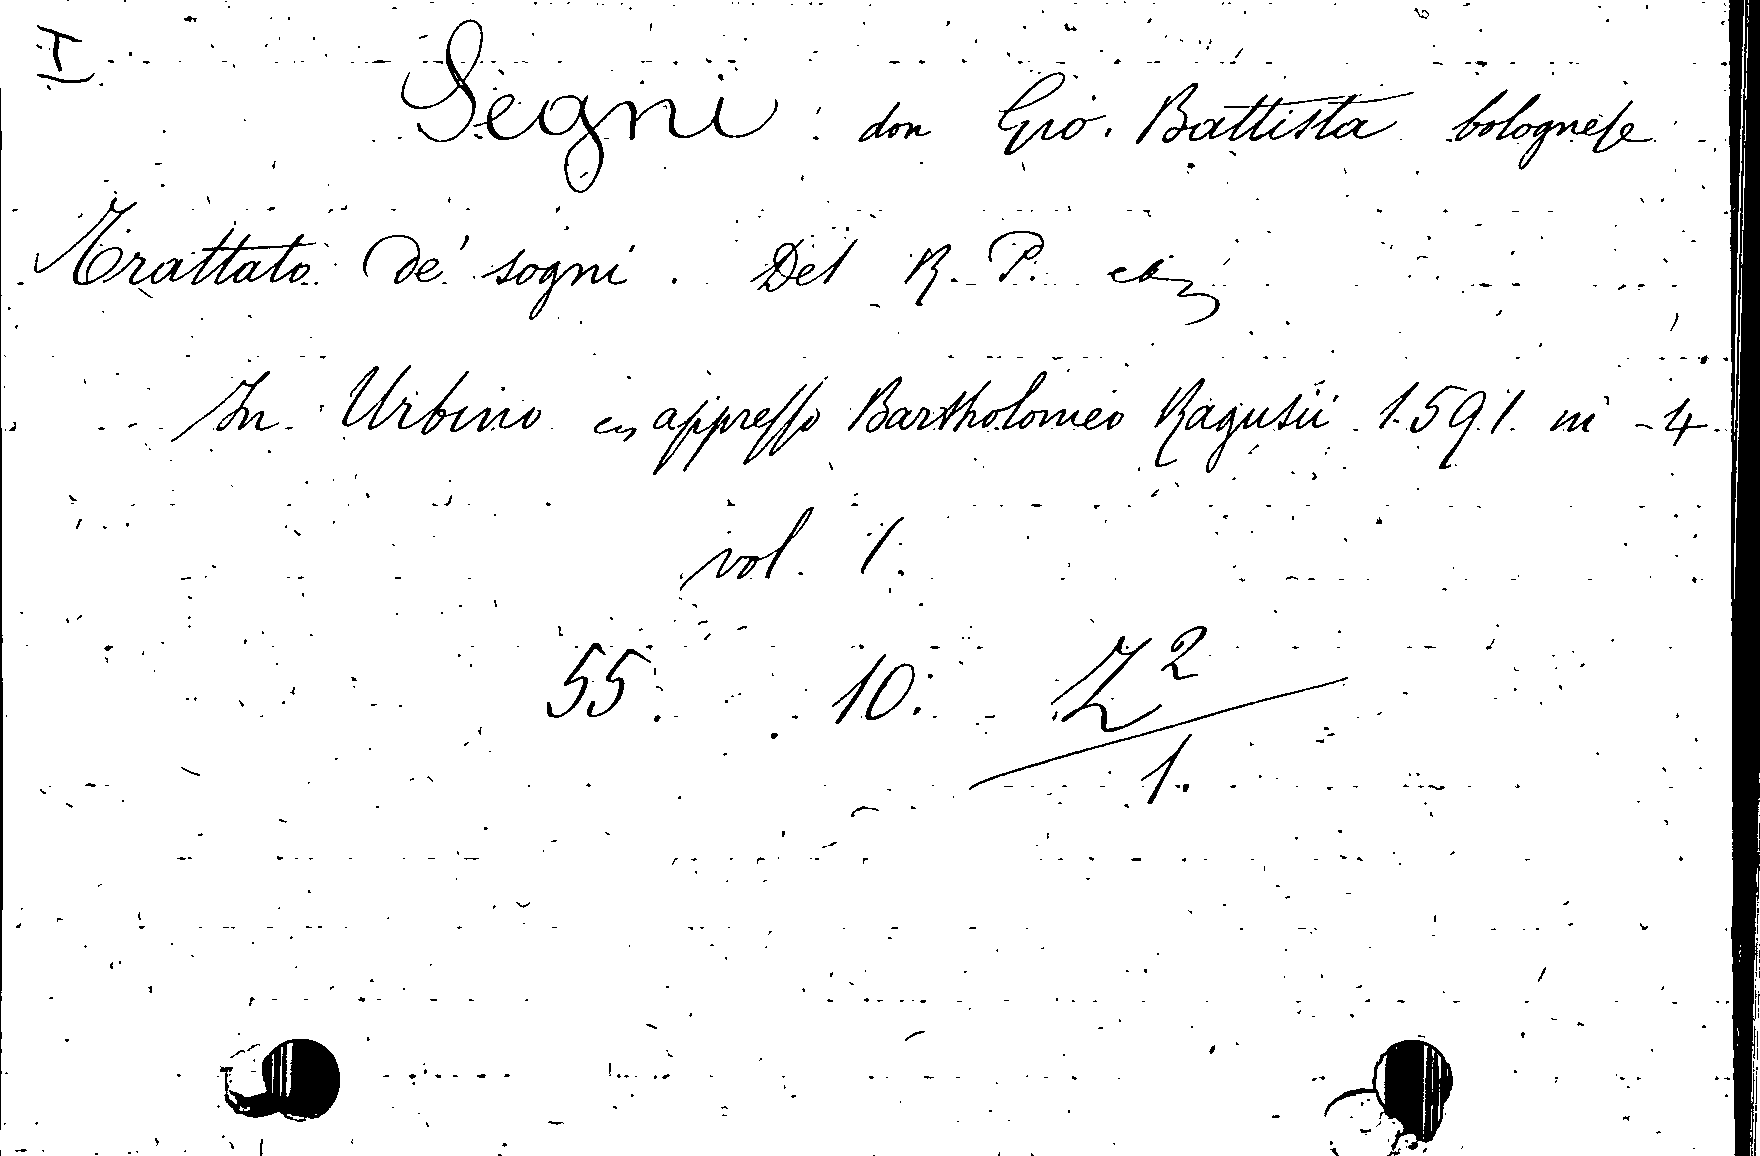 I
Segni : don Gio. Battista bolognese
Trattato de' sogni. Del R. P.
In Urbino appresso Bartholomeo Ragusii 1591. in -4.
vol. 1.
55. 10. Z²
1.